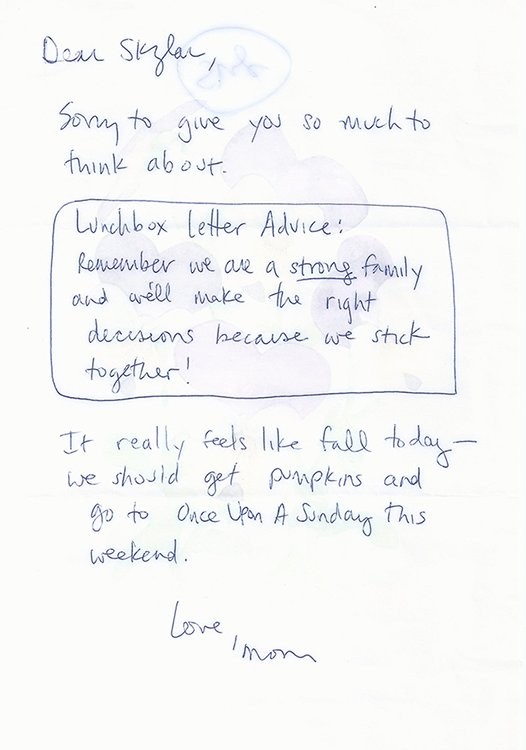 Dear Skylar,
Sorry to give you so much to
think about.
Lunchbox Letter Advice:
Remember we are a strong family
and we'll make the right
decisions because we stick
together!
It really feels like fall today—
we should get pumpkins and
go to Once Upon A Sunday this
weekend.
Love,
mom